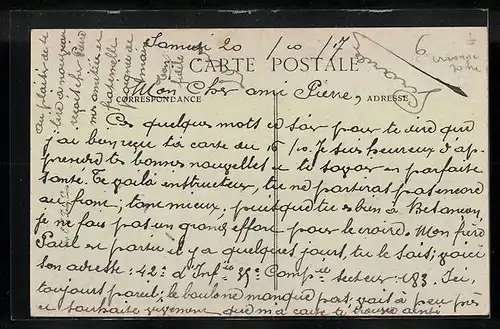 Samedi 20/10/17
CARTE POSTALE
CORRESPONDANCE
ADRESSE
Mon Cher ami Pierre,
Ces quelques mots ce soir pour te dire que
j'ai bien reçu ta carte du 16/10. Je suis heureux d'ap-
prendre tes bonnes nouvelles et te savoir en parfaite
santé. Te voilà instructeur, tu ne partiras pas encore
au front; tant mieux, puisque tu es bien à Besançon,
je ne fais pas un grand effort pour le croire. Mon frère
Paul est partie il y a quelques jours, tu le sais; voici
son adresse: 42e d'Infie 35e Compie secteur: 183. Ici,
toujours pareil; le boulot ne manque pas, vait à peu près
et souhaite vivement que ma carte te trouve ainsi
au plaisir de te
lire à nouveau
reçois cher Pierre
mes amitiés et
fraternelle
poignée de
mains
ton
6